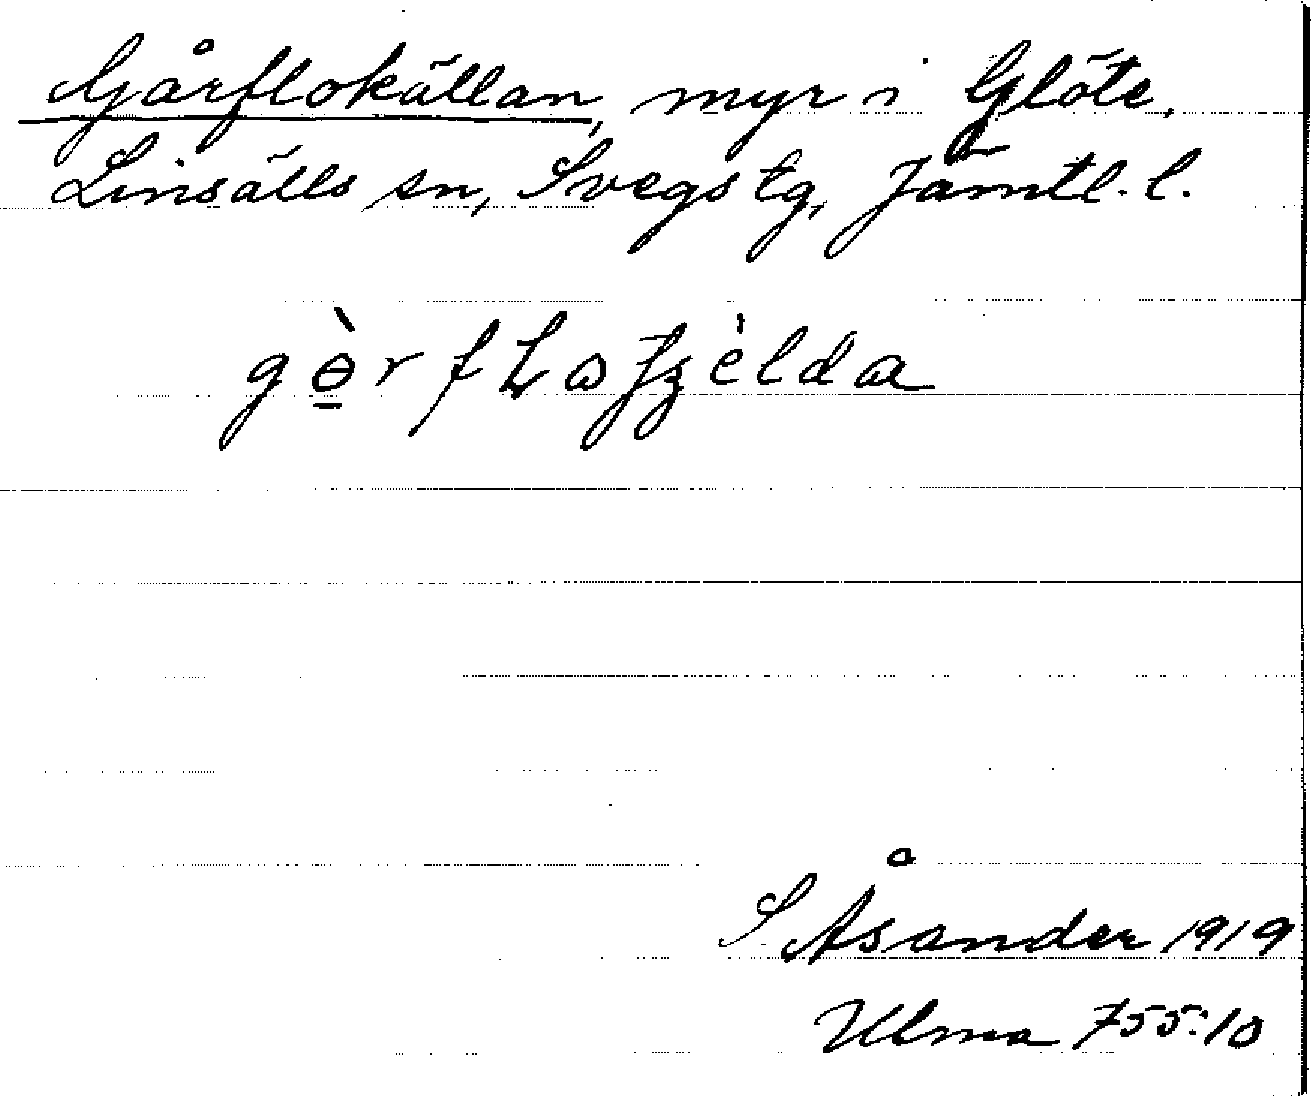 Gårflokällan, myr i Glöte,
Linsälls sn, Svegs tg, Jämtl. l.
gɵ̠̀rfLoʃʒèlda
S Åsander 1919
Ulma 755:10